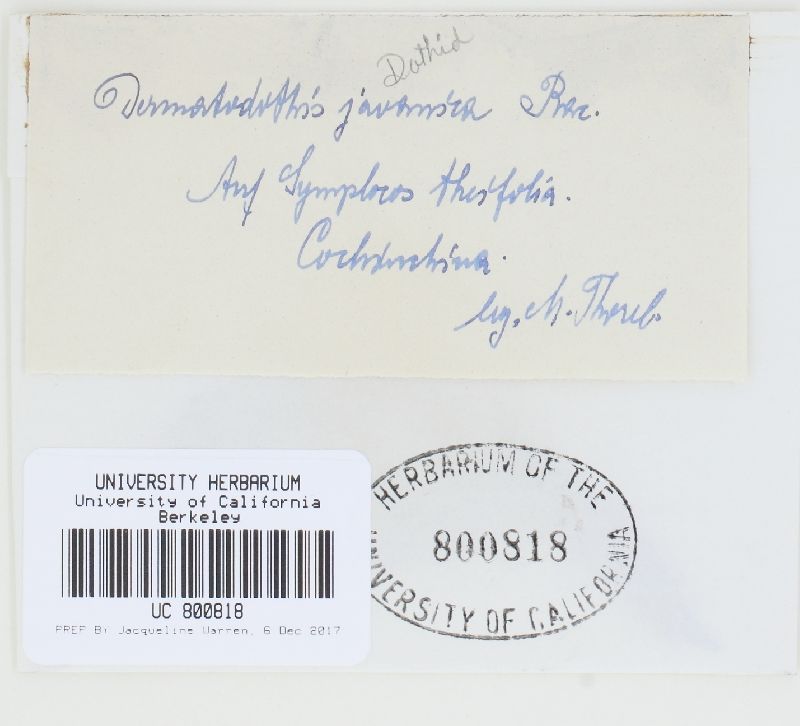 Dothid
Dermatodothis javanica Rac.
Auf Symplocos theifolia.
Cochinchina.
leg. M. Thorel.
UNIVERSITY HERBARIUM
University of California
Berkeley
UC 800818
PREP BY Jacqueline Warren, 6 Dec 2017
HERBARIUM OF THE
800818
UNIVERSITY OF CALIFORNIA